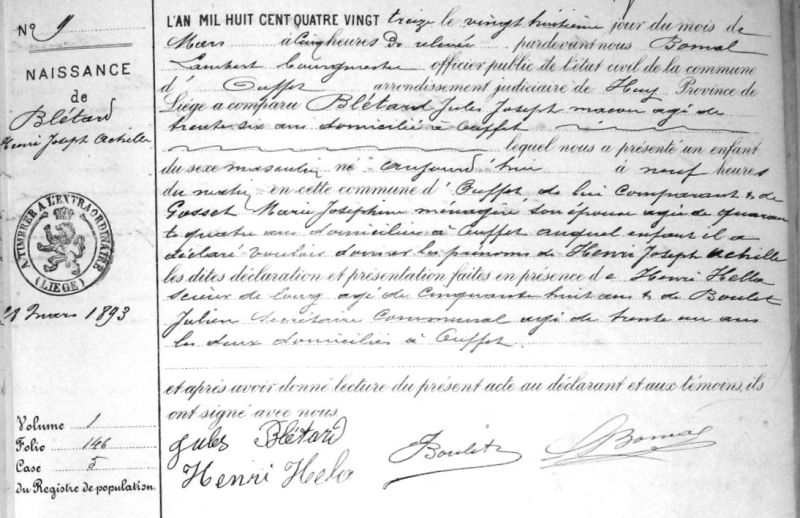 No 9
NAISSANCE
de
Blétard
Henri Joseph Achille
A TIMBRER A L'EXTRAORDINAIRE
(LIÉGE)
28 Mars 1893
Volume 1
Folio 146
Case 5
du Registre de population.
L'AN MIL HUIT CENT QUATRE VINGT treize le vingt huitième jour du mois de
Mars à Cinq heures De relevée pardevant nous Bomal
Lambert Bourgmestre officier public de l'état civil de la commune
d' Ouffet arrondissement judiciaire de Huy Province de
Liége a comparu Blétard Jules Joseph maçon agé de
trente six ans domicilié à Ouffet
lequel nous a présenté un enfant
du sexe masculin né aujourd'hui à neuf heures
du matin en cette commune d' Ouffet de lui Comparant & de
Gosset Marie Josephine ménagère son épouse agée de quaran
te quatre ans domiciliée à Ouffet auquel enfant il a
déclaré vouloir donner les prénoms de Henri Joseph Achille
les dites déclaration et présentation faites en présence de Henri Hella
Scieur de long agé de Cinquante huit ans & de Boulet
Julien Secrétaire Communal agé de trente un ans
les deux domiciliés à Ouffet.
et après avoir donné lecture du présent acte au déclarant et aux témoins, ils
ont signé avec nous
Jules Blétard
Boulet
Bomal
Henri Hela